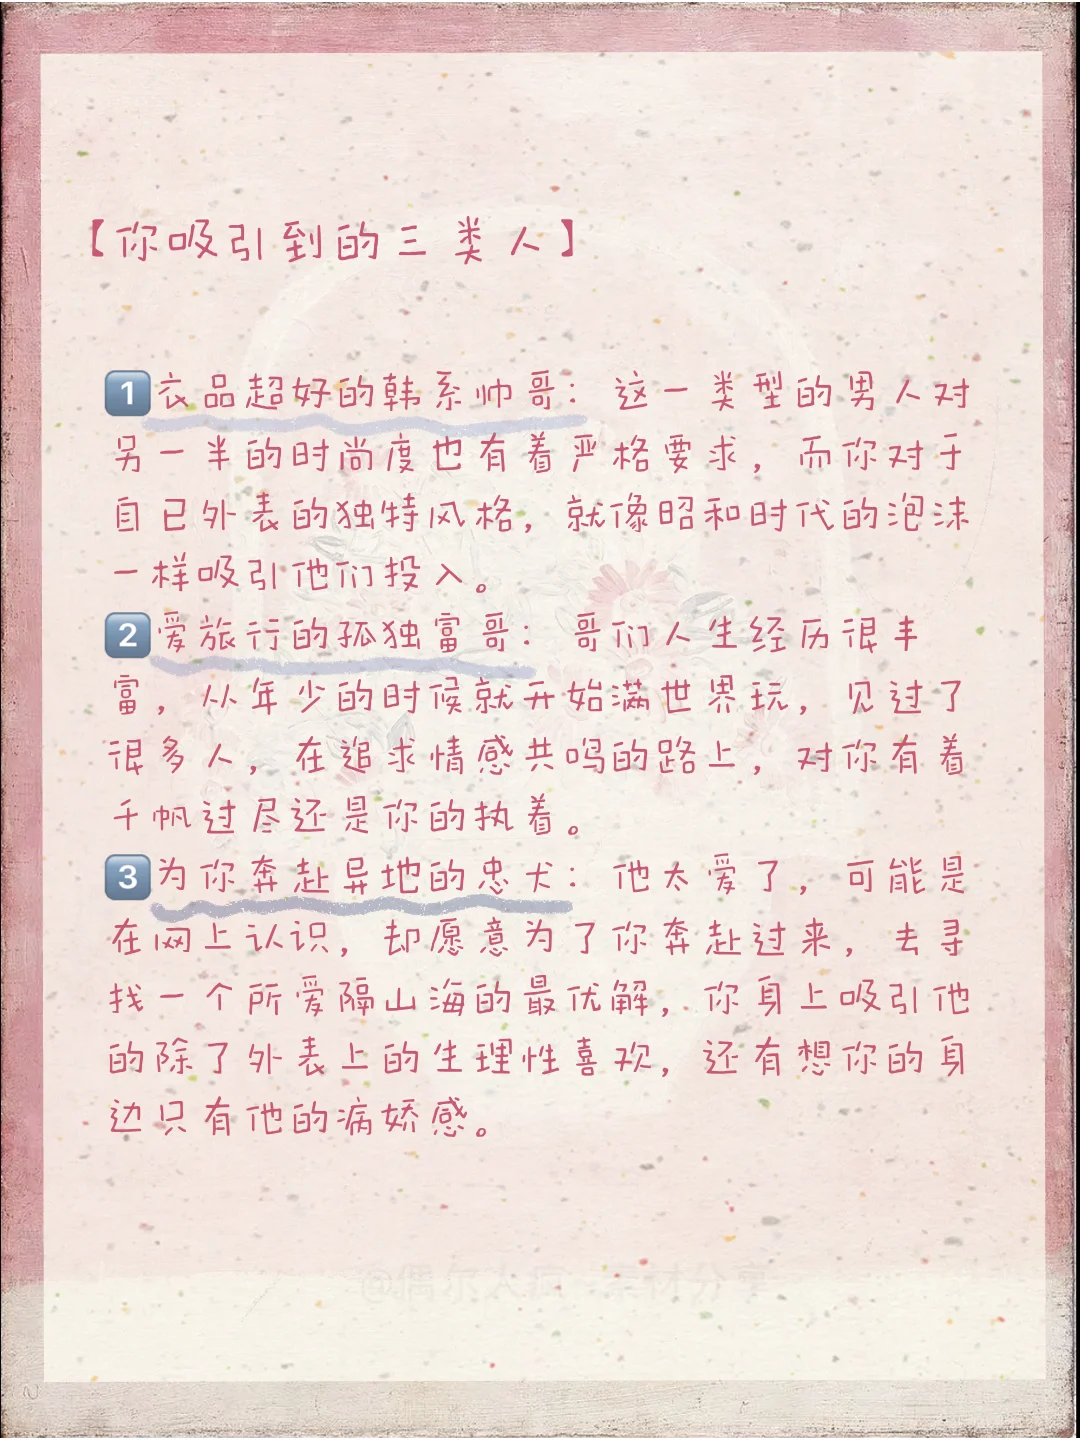 【你吸引到的三类人】
1 衣品超好的韩系帅哥：这一类型的男人对
另一半的时尚度也有着严格要求，而你对于
自己外表的独特风格，就像昭和时代的泡沫
一样吸引他们投入。
2 爱旅行的孤独富哥：哥们人生经历很丰
富，从年少的时候就开始满世界玩，见过了
很多人，在追求情感共鸣的路上，对你有着
千帆过尽还是你的执着。
3 为你奔赴异地的忠犬：他太爱了，可能是
在网上认识，却愿意为了你奔赴过来，去寻
找一个所爱隔山海的最优解，你身上吸引他
的除了外表上的生理性喜欢，还有想你的身
边只有他的病娇感。
@偶尔人间 素材分享